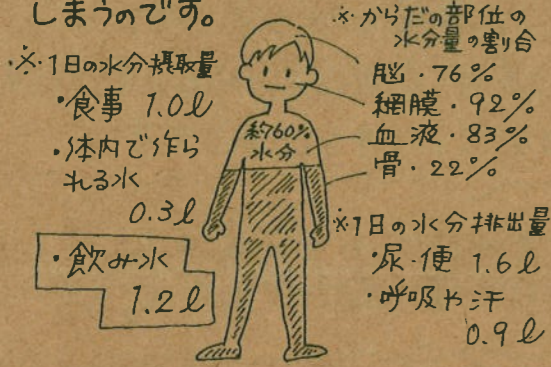 しまうのです。
※1日の水分摂取量
・食事 1.0ℓ
・体内で作ら
れる水
0.3ℓ
・飲み水
1.2ℓ
約60%
水分
※からだの部位の
水分量の割合
脳・76%
網膜・92%
血液・83%
骨・22%
※1日の水分排出量
・尿・便 1.6ℓ
・呼吸や汗
0.9ℓ